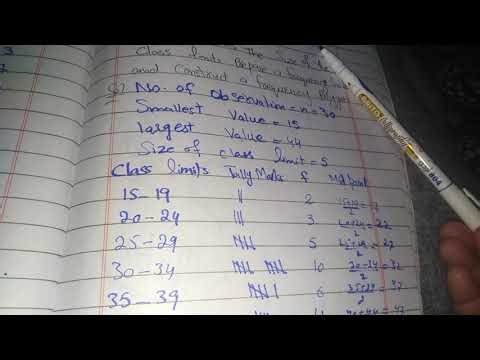 Class limits Prepare a frequency
and Construct a frequency Polygon
No. of Observation = n = 30
Smallest Value = 15
largest Value = 44
Size of class limit = 5
Class limits Tally Marks f Mid point
15-19 || 2 = 17
20-24 ||| 3 20+24/2 = 22
25-29 5 25+29/2 = 27
30-34 10 30+34/2 = 32
35-39 6 35+39/2 = 37
40+44 = 42